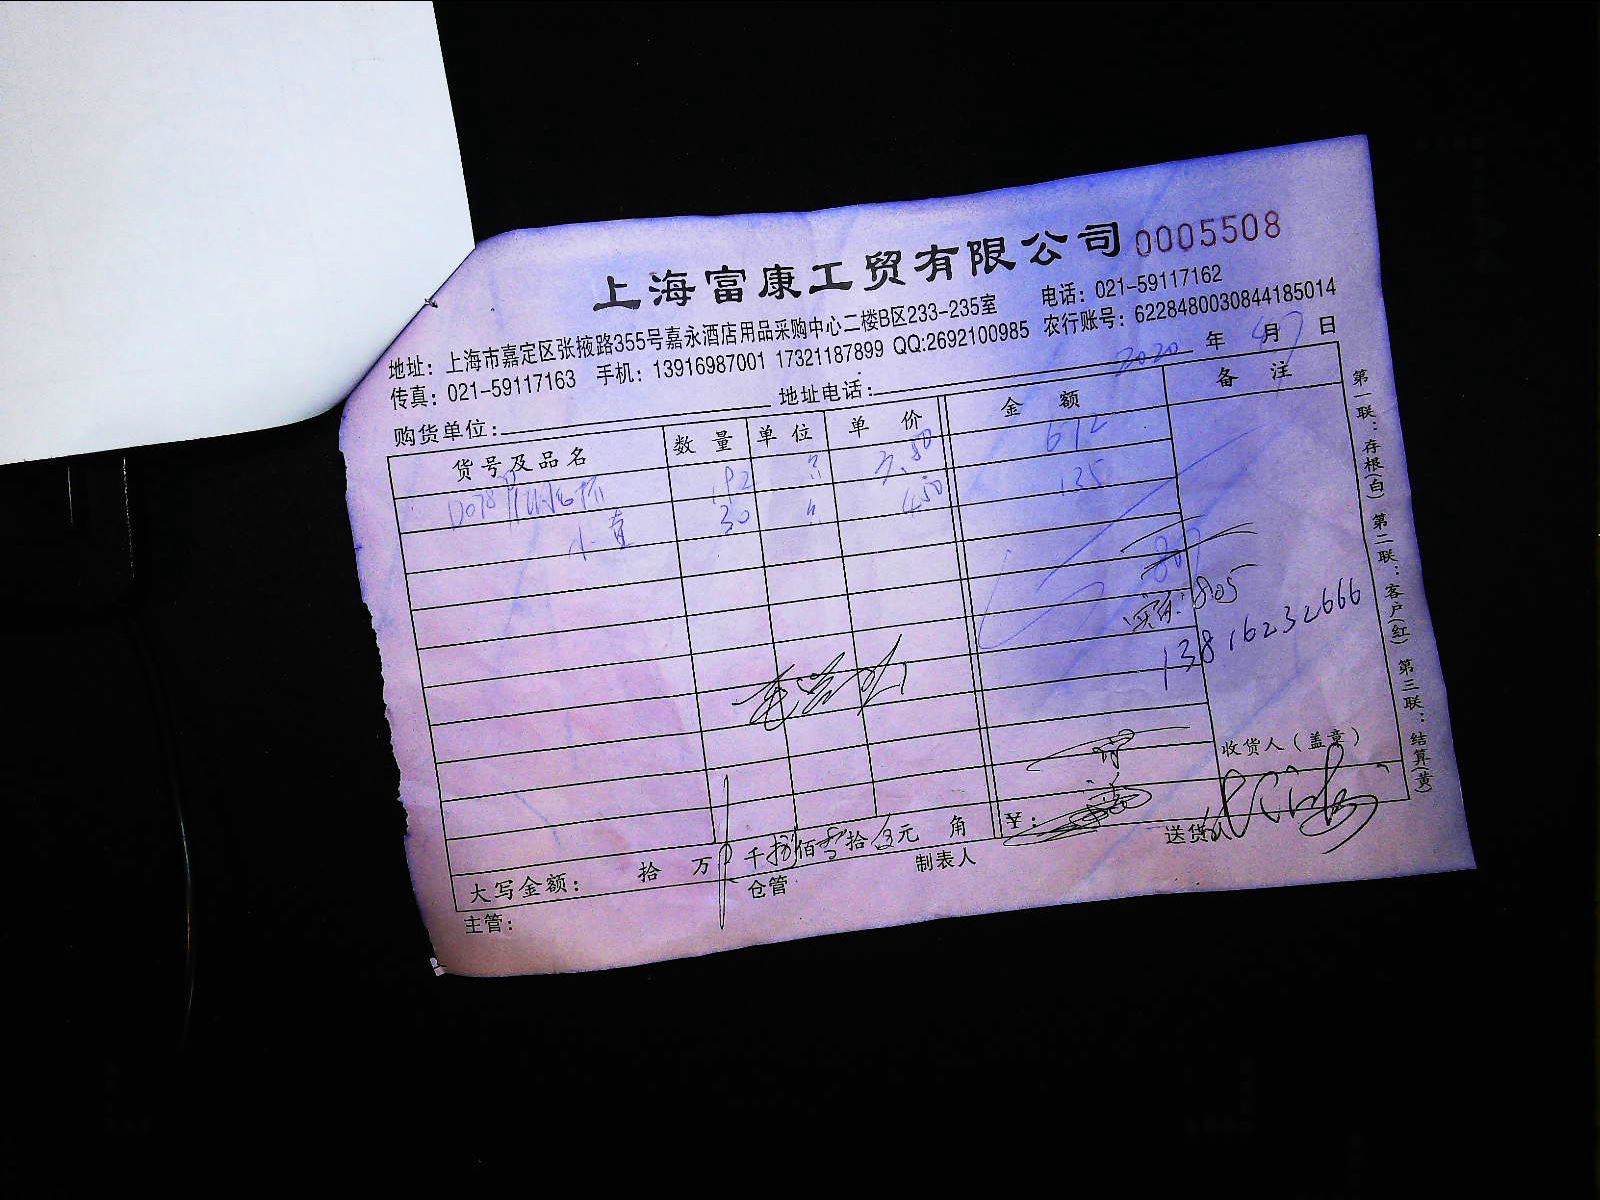 上海富康工贸有限公司 0005508
地址：上海市嘉定区张掖路355号嘉永酒店用品采购中心二楼B区233-235室 电话：021-59117162
传真：021-59117163 手机：13916987001 17321187899 QQ:2692100985 农行账号：6228480030844185014
购货单位： 地址电话： 2020 年 4月7日
货号及品名 数量 单位 单价 金额 备注
D078 192 3.50 672
小直 30 〃 4.50 135
807
实际：805
13816232666
收货人（盖章）
大写金额： 拾 万 千捌佰零拾伍元 角 ￥：
主管： 仓管 制表人 送货
第一联：存根(白) 第二联：客户(红) 第三联：结算(黄)